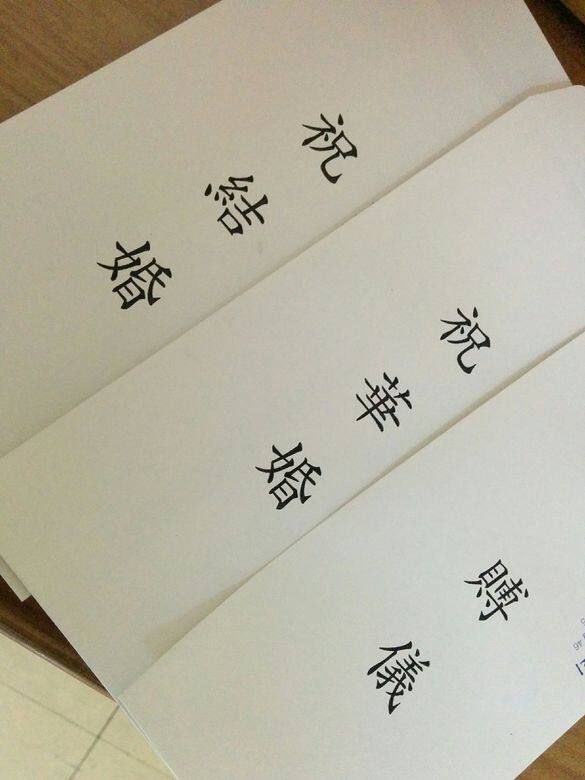 祝結婚
祝華婚
賻儀